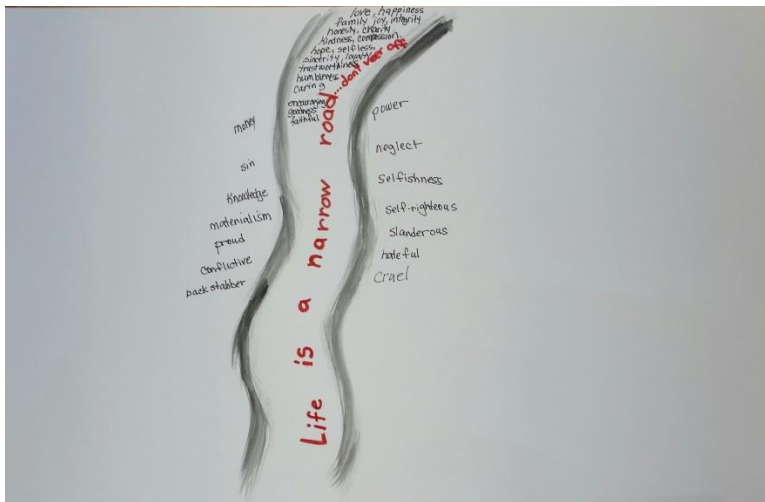 love, happiness
family joy, integrity
honesty, charity
kindness, compassion,
hope, selfless,
sincerity, loyalty
trustworthiness
humbleness
caring
encouraging
goodness
faithful
Life is a narrow road...don't veer off
money
sin
Knowledge
materialism
proud
conflictive
back stabber
power
neglect
selfishness
self-righteous
slanderous
hateful
Cruel